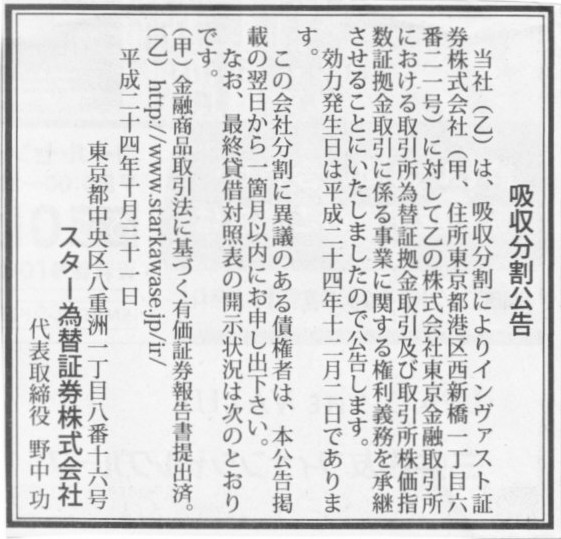 吸収分割公告
当社（乙）は、吸収分割によりインヴァスト証
券株式会社（甲、住所東京都港区西新橋一丁目六
番二一号）に対して乙の株式会社東京金融取引所
における取引所為替証拠金取引及び取引所株価指
数証拠金取引に係る事業に関する権利義務を承継
させることにいたしましたので公告します。
効力発生日は平成二十四年十二月二日でありま
す。
この会社分割に異議のある債権者は、本公告掲
載の翌日から一箇月以内にお申し出下さい。
なお、最終貸借対照表の開示状況は次のとおり
です。
（甲）金融商品取引法に基づく有価証券報告書提出済。
（乙）http://www.starkawase.jp/ir/
平成二十四年十月三十一日
東京都中央区八重洲一丁目八番十六号
スター為替証券株式会社
代表取締役 野中 功